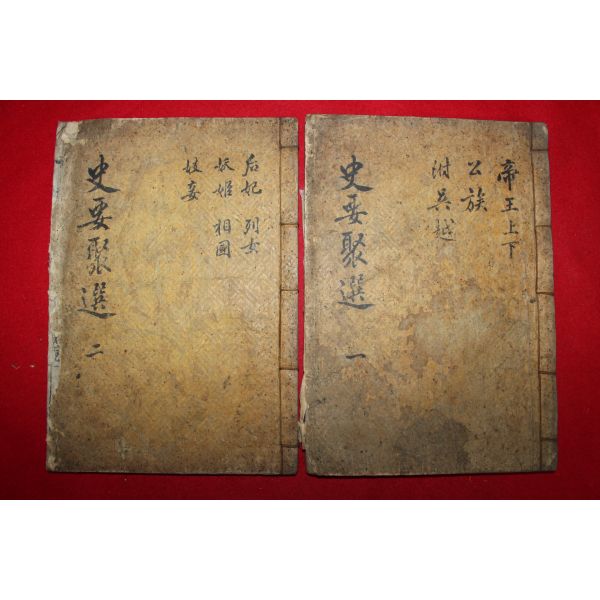 帝王上下
公族
附吳越
史要聚選 一
后妃 列女
妖姬 相國
妓妾
史要聚選 二